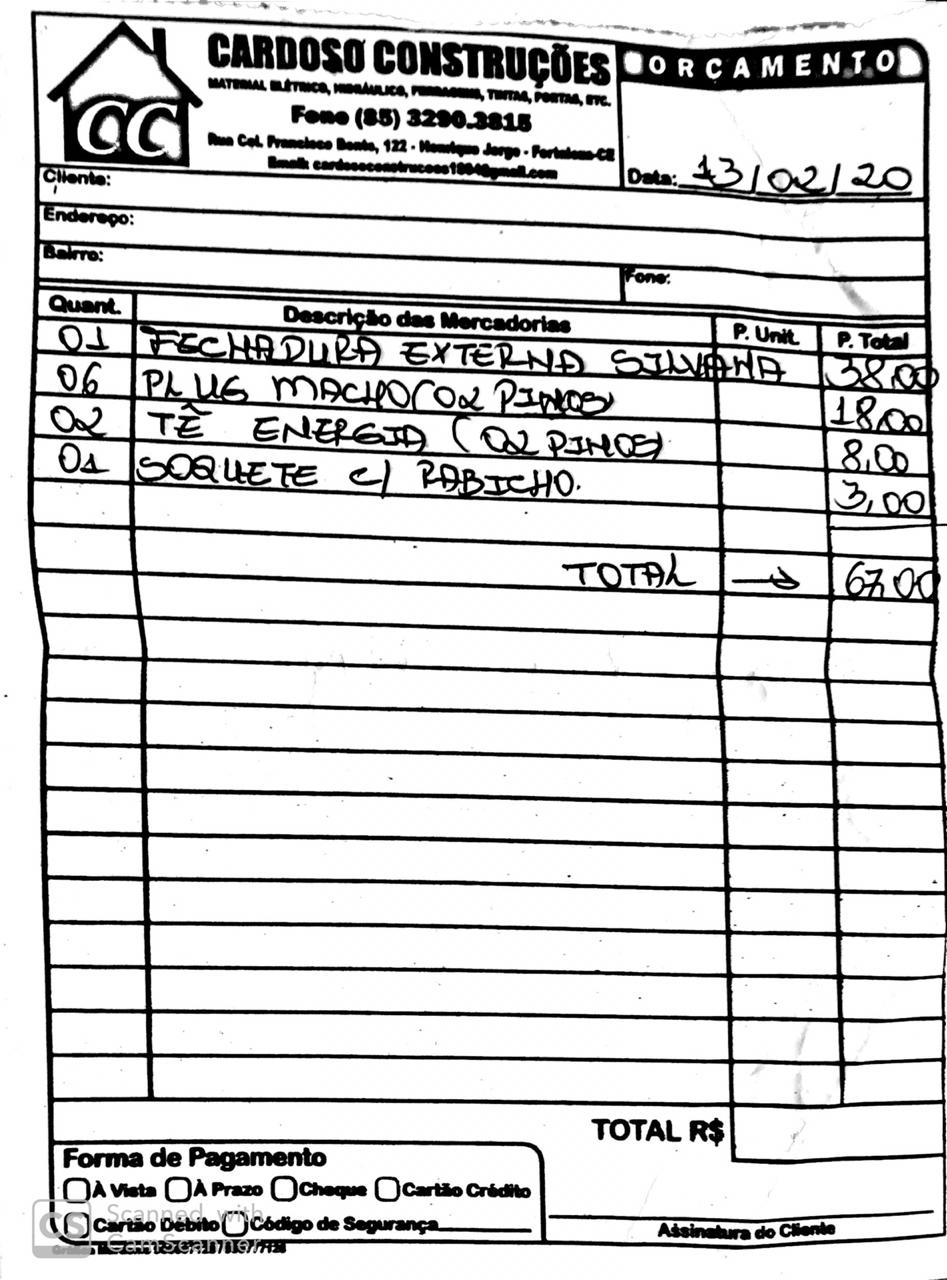 CARDOSO CONSTRUÇÕES
ORÇAMENTO
MATERIAL ELÉTRICO, HIDRÁULICO, FERRAGENS, TINTAS, PORTAS, ETC.
Fone (85) 3290.3815
Rua Cel. Francisco Bento, 122 - Henrique Jorge - Fortaleza-CE
Email: cardosoconstrucoes1994@gmail.com
CC
Data: 13/02/20
Cliente:
Endereço:
Bairro:
Fone:
Quant. Descrição das Mercadorias P. Unit. P. Total
01 FECHADURA EXTERNA SILVANA 38,00
06 PLUG MACHO (02 PINOS) 18,00
02 TÊ ENERGIA (02 PINOS) 8,00
01 SOQUETE C/ RABICHO. 3,00
TOTAL → 67,00
TOTAL R$
Forma de Pagamento
À Vista À Prazo Cheque Cartão Crédito
Cartão Débito Código de Segurança
Assinatura do Cliente
CS Scanned with
CamScanner